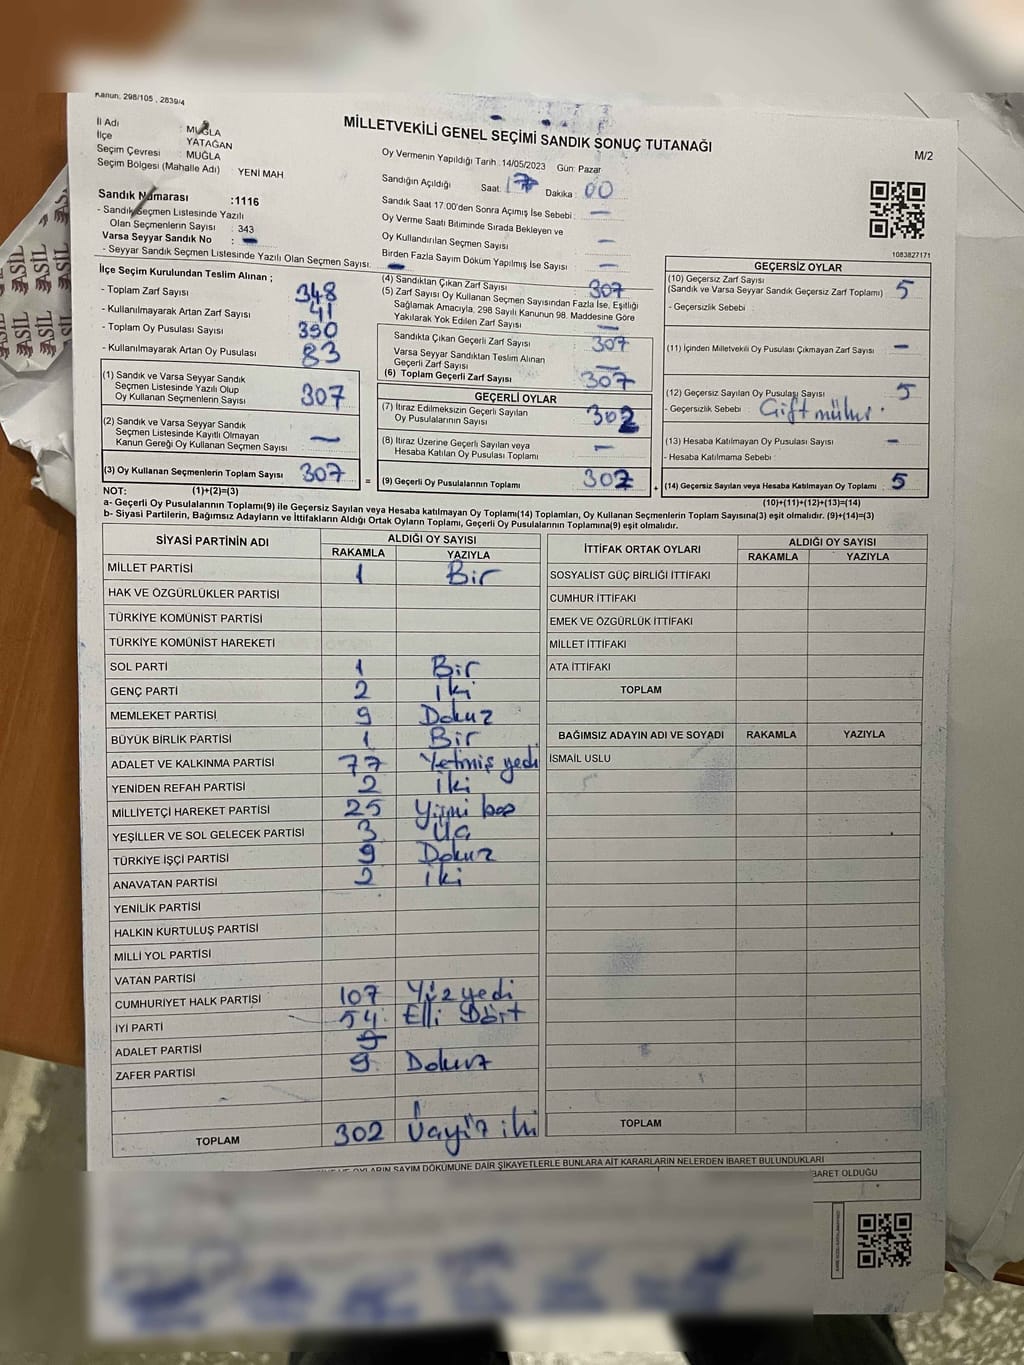 Kanun, 298/105 , 2839/4
MİLLETVEKİLİ GENEL SEÇİMİ SANDIK SONUÇ TUTANAĞI
M/2
İl Adı : MUĞLA
İlçe YATAĞAN
Seçim Çevresi : MUĞLA
Seçim Bölgesi (Mahalle Adı) YENİ MAH
Sandık Numarası :1116
- Sandık Seçmen Listesinde Yazılı
Olan Seçmenlerin Sayısı : 343
Varsa Seyyar Sandık No : -
- Seyyar Sandık Seçmen Listesinde Yazılı Olan Seçmen Sayısı. -
Oy Vermenin Yapıldığı Tarih : 14/05/2023 Gün: Pazar
Sandığın Açıldığı Saat: 17 Dakika : 00
Sandık Saat 17:00'den Sonra Açımış İse Sebebi : -
Oy Verme Saati Bitiminde Sırada Bekleyen ve
Oy Kullandırılan Seçmen Sayısı -
Birden Fazla Sayım Döküm Yapılmış İse Sayısı -
1083827171
İlçe Seçim Kurulundan Teslim Alınan ;
- Toplam Zarf Sayısı 348
- Kullanılmayarak Artan Zarf Sayısı 41
- Toplam Oy Pusulası Sayısı 390
- Kullanılmayarak Artan Oy Pusulası 83
(1) Sandık ve Varsa Seyyar Sandık
Seçmen Listesinde Yazılı Olup
Oy Kullanan Seçmenlerin Sayısı 307
(2) Sandık ve Varsa Seyyar Sandık
Seçmen Listesinde Kayıtlı Olmayan
Kanun Gereği Oy Kullanan Seçmen Sayısı -
(3) Oy Kullanan Seçmenlerin Toplam Sayısı 307 =
(1)+(2)=(3)
(4) Sandıktan Çıkan Zarf Sayısı 307
(5) Zarf Sayısı Oy Kullanan Seçmen Sayısından Fazla İse, Eşitliği
Sağlamak Amacıyla, 298 Sayılı Kanunun 98. Maddesine Göre
Yakılarak Yok Edilen Zarf Sayısı -
Sandıkta Çıkan Geçerli Zarf Sayısı 307
Varsa Seyyar Sandıktan Teslim Alınan
Geçerli Zarf Sayısı -
(6) Toplam Geçerli Zarf Sayısı 307
GEÇERLİ OYLAR
(7) İtiraz Edilmeksizin Geçerli Sayılan
Oy Pusulalarının Sayısı 302
(8) İtiraz Üzerine Geçerli Sayılan veya
Hesaba Katılan Oy Pusulası Toplamı -
(9) Geçerli Oy Pusulalarının Toplamı 302 +
GEÇERSİZ OYLAR
(10) Geçersiz Zarf Sayısı
(Sandık ve Varsa Seyyar Sandık Geçersiz Zarf Toplamı) 5
- Geçersizlik Sebebi :
(11) İçinden Milletvekili Oy Pusulası Çıkmayan Zarf Sayısı -
(12) Geçersiz Sayılan Oy Pusulası Sayısı 5
- Geçersizlik Sebebi : Çift mühür.
(13) Hesaba Katılmayan Oy Pusulası Sayısı -
- Hesaba Katılmama Sebebi :
(14) Geçersiz Sayılan veya Hesaba Katılmayan Oy Toplamı 5
(10)+(11)+(12)+(13)=(14)
NOT:
a- Geçerli Oy Pusulalarının Toplamı(9) ile Geçersiz Sayılan veya Hesaba katılmayan Oy Toplamı(14) Toplamları, Oy Kullanan Seçmenlerin Toplam Sayısına(3) eşit olmalıdır. (9)+(14)=(3)
b- Siyasi Partilerin, Bağımsız Adayların ve İttifakların Aldığı Ortak Oyların Toplamı, Geçerli Oy Pusulalarının Toplamına(9) eşit olmalıdır.
SİYASİ PARTİNİN ADI ALDIĞI OY SAYISI
RAKAMLA YAZIYLA
MİLLET PARTİSİ 1 Bir
HAK VE ÖZGÜRLÜKLER PARTİSİ
TÜRKİYE KOMÜNİST PARTİSİ
TÜRKİYE KOMÜNİST HAREKETİ
SOL PARTİ 1 Bir
GENÇ PARTİ 2 iki
MEMLEKET PARTİSİ 9 Dokuz
BÜYÜK BİRLİK PARTİSİ 1 Bir
ADALET VE KALKINMA PARTİSİ 77 Yetmiş yedi
YENİDEN REFAH PARTİSİ 2 iki
MİLLİYETÇİ HAREKET PARTİSİ 25 Yirmi beş
YEŞİLLER VE SOL GELECEK PARTİSİ 3 Üç
TÜRKİYE İŞÇİ PARTİSİ 9 Dokuz
ANAVATAN PARTİSİ 2 iki
YENİLİK PARTİSİ
HALKIN KURTULUŞ PARTİSİ
MİLLİ YOL PARTİSİ
VATAN PARTİSİ
CUMHURİYET HALK PARTİSİ 107 Yüz yedi
İYİ PARTİ 54 Elli Dört
ADALET PARTİSİ
ZAFER PARTİSİ 9 Dokuz
TOPLAM 302 Üçyüz iki
İTTİFAK ORTAK OYLARI ALDIĞI OY SAYISI
RAKAMLA YAZIYLA
SOSYALİST GÜÇ BİRLİĞİ İTTİFAKI
CUMHUR İTTİFAKI
EMEK VE ÖZGÜRLÜK İTTİFAKI
MİLLET İTTİFAKI
ATA İTTİFAKI
TOPLAM
BAĞIMSIZ ADAYIN ADI VE SOYADI RAKAMLA YAZIYLA
İSMAİL USLU
TOPLAM
OYLARIN SAYIM DÖKÜMÜNE DAİR ŞİKAYETLERLE BUNLARA AİT KARARLARIN NELERDEN İBARET BULUNDUKLARI
BARET OLDUĞU
ASİL
ASİL
ASİL
ASİL